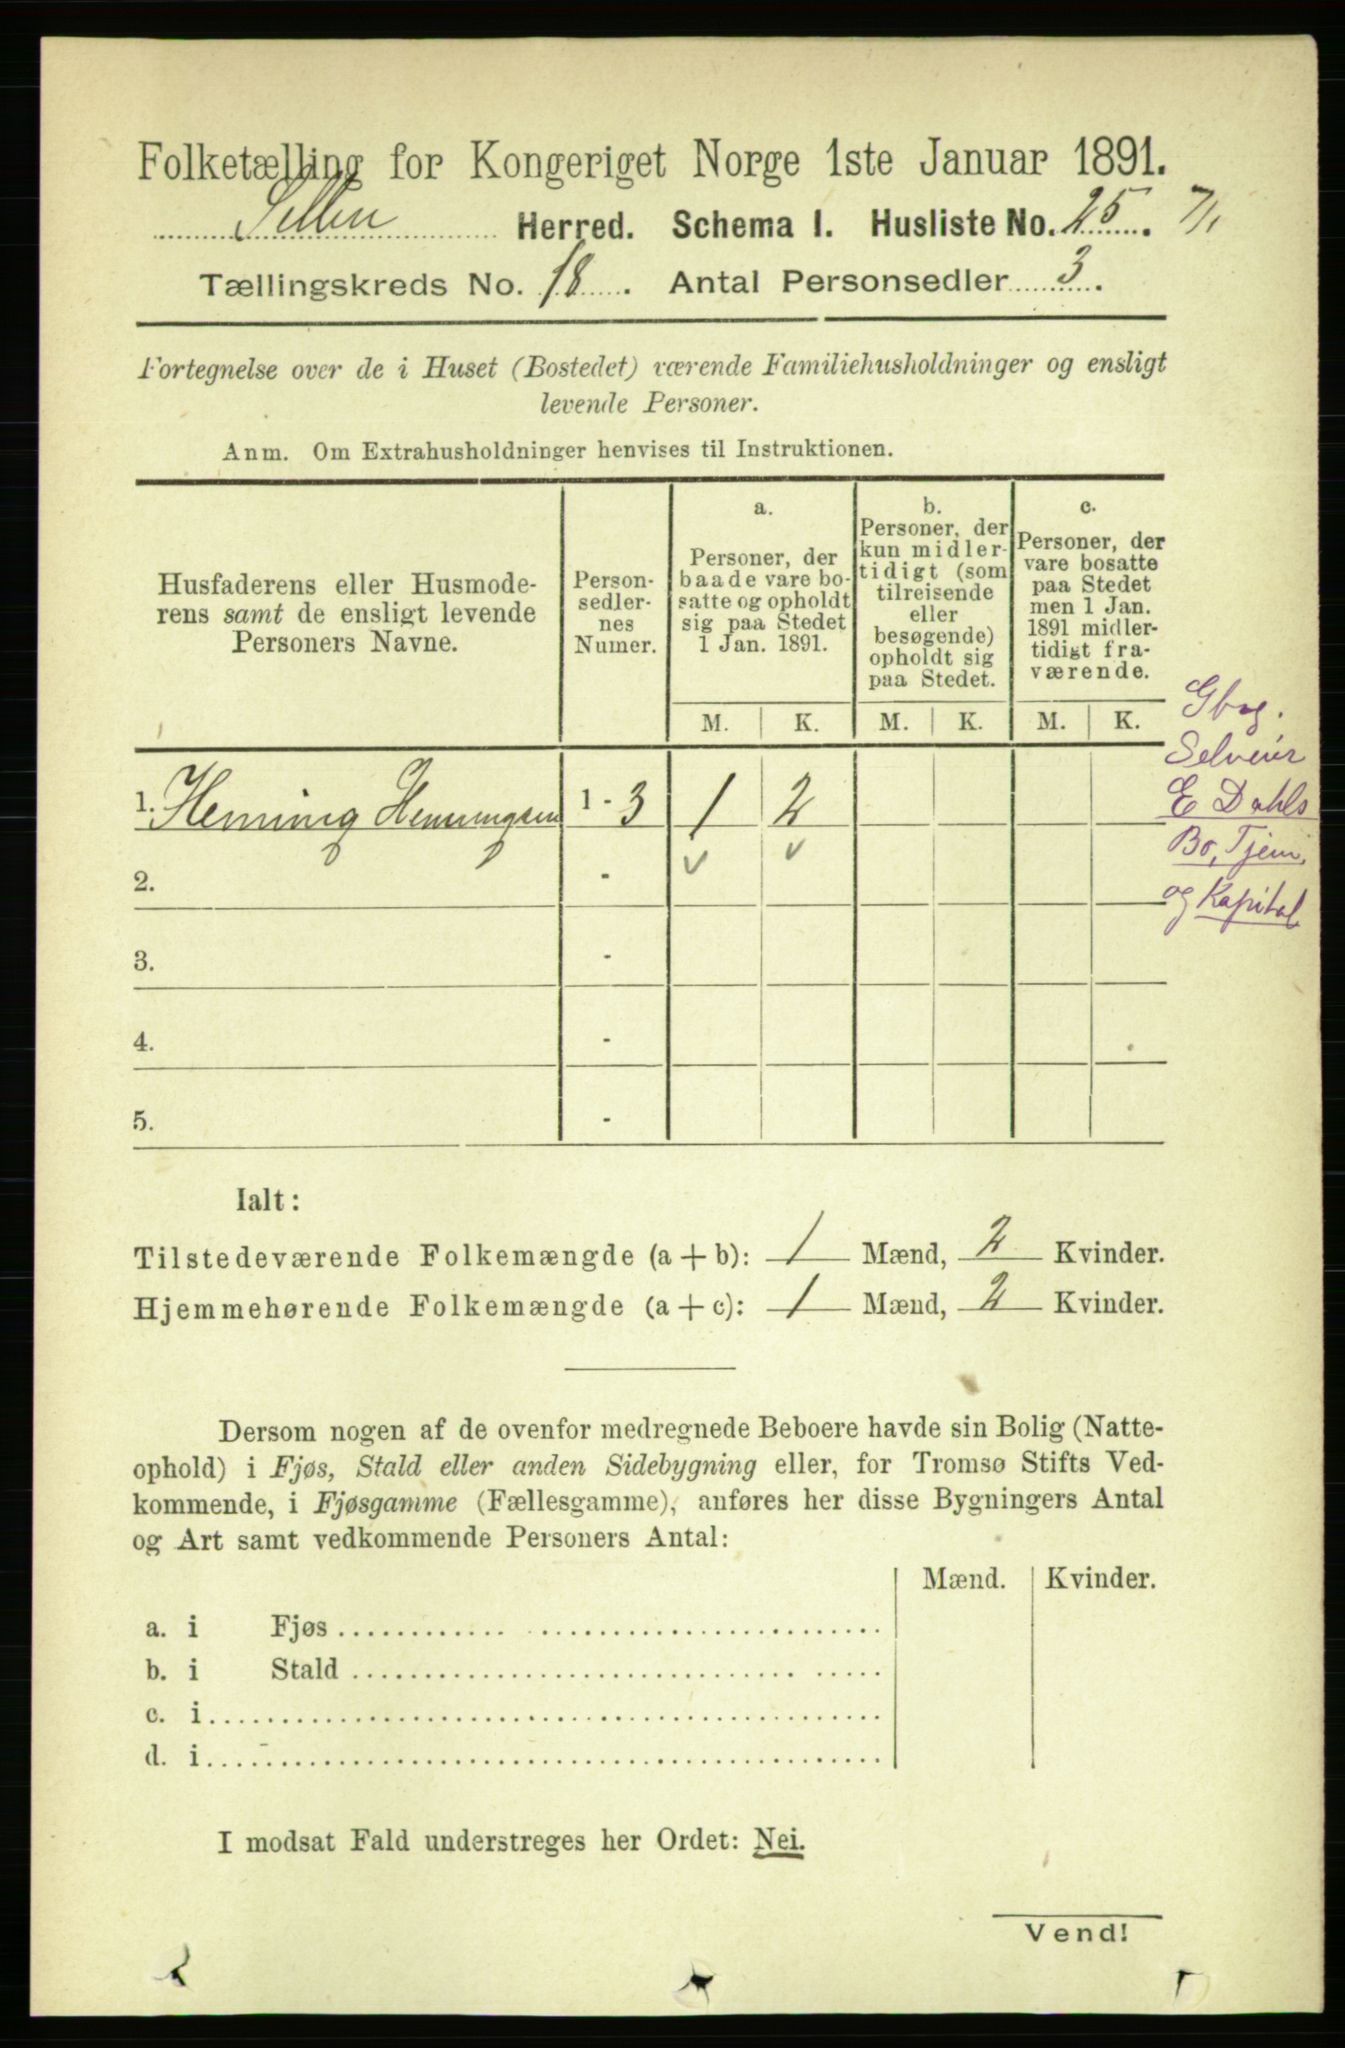 Folketælling for Kongeriget Norge 1ste Januar 1891.
Herred. Schema I. Husliste No. 25. 7/1
Tællingskreds No. 18. Antal Personsedler 3.
Fortegnelse over de i Huset (Bostedet) værende Familiehusholdninger og ensligt
levende Personer.
Anm. Om Extrahusholdninger henvises til Instruktionen.
Husfaderens eller Husmode-
rens samt de ensligt levende
Personers Navne.
Person-
sedler-
nes
Numer.
a.
Personer, der
baade vare bo-
satte og opholdt
sig paa Stedet
1 Jan. 1891.
b.
Personer, der
kun midler-
tidigt (som
tilreisende
eller
besøgende)
opholdt sig
paa Stedet.
c.
Personer, der
vare bosatte
paa Stedet
men 1 Jan.
1891 midler-
tidigt fra-
værende.
M. K. M. K. M. K.
1. Heming Hemmingsen 1 - 3 1 2
2. -
3. -
4. -
5. -
Gbrg.
Selveier
E Dahls
Bo, Tjem,
og Kapital
Ialt:
Tilstedeværende Folkemængde (a + b): 1 Mænd, 2 Kvinder.
Hjemmehørende Folkemængde (a + c): 1 Mænd, 2 Kvinder.
Dersom nogen af de ovenfor medregnede Beboere havde sin Bolig (Natte-
ophold) i Fjøs, Stald eller anden Sidebygning eller, for Tromsø Stifts Ved-
kommende, i Fjøsgamme (Fællesgamme), anføres her disse Bygningers Antal
og Art samt vedkommende Personers Antal:
Mænd. Kvinder.
a. i Fjøs
b. i Stald
c. i
d. i
I modsat Fald understreges her Ordet: Nei.
Vend!